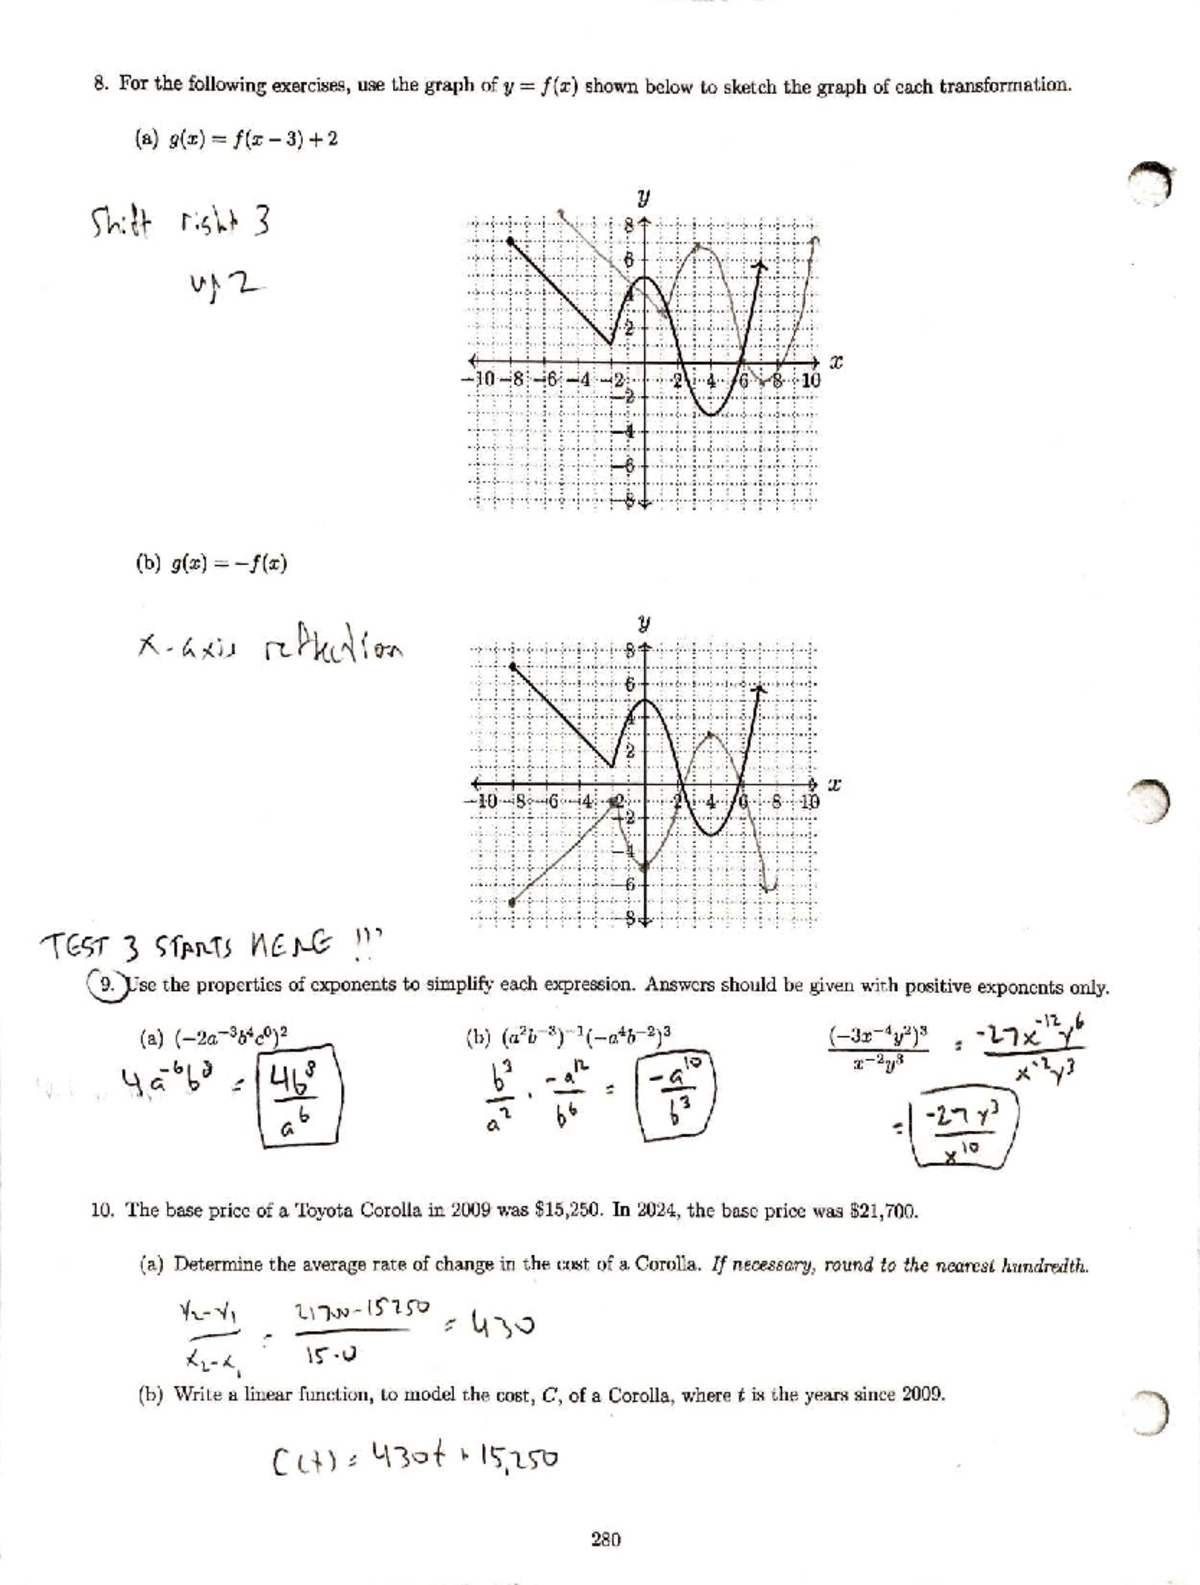 8. For the following exercises, use the graph of y = f(x) shown below to sketch the graph of each transformation.
(a) g(x) = f(x − 3) + 2
Shift right 3
up 2
y
8
6
4
2
x
−10 −8 −6 −4 −2 2 4 6 8 10
−2
−4
−6
−8
(b) g(x) = −f(x)
x-axis reflection
y
8
6
4
2
x
−10 −8 −6 −4 −2 2 4 6 8 10
−2
−4
−6
−8
TEST 3 STARTS HERE !!!
9. Use the properties of exponents to simplify each expression. Answers should be given with positive exponents only.
(a) (−2a⁻³b⁴c⁰)² (b) (a²b⁻³)⁻¹(−a⁴b⁻²)³ (−3x⁻⁴y²)³ / x⁻²y³ = -27x⁻¹²y⁶ / x⁻²y³
4a⁻⁶b⁸ = 4b⁸ / a⁶ b³ / a² · -a¹² / b⁶ = -a¹⁰ / b³
= -27y³ / x¹⁰
10. The base price of a Toyota Corolla in 2009 was $15,250. In 2024, the base price was $21,700.
(a) Determine the average rate of change in the cost of a Corolla. If necessary, round to the nearest hundredth.
y₂-y₁ / x₂-x₁ = 21700-15250 / 15-0 = 430
(b) Write a linear function, to model the cost, C, of a Corolla, where t is the years since 2009.
C(t) = 430t + 15,250
280